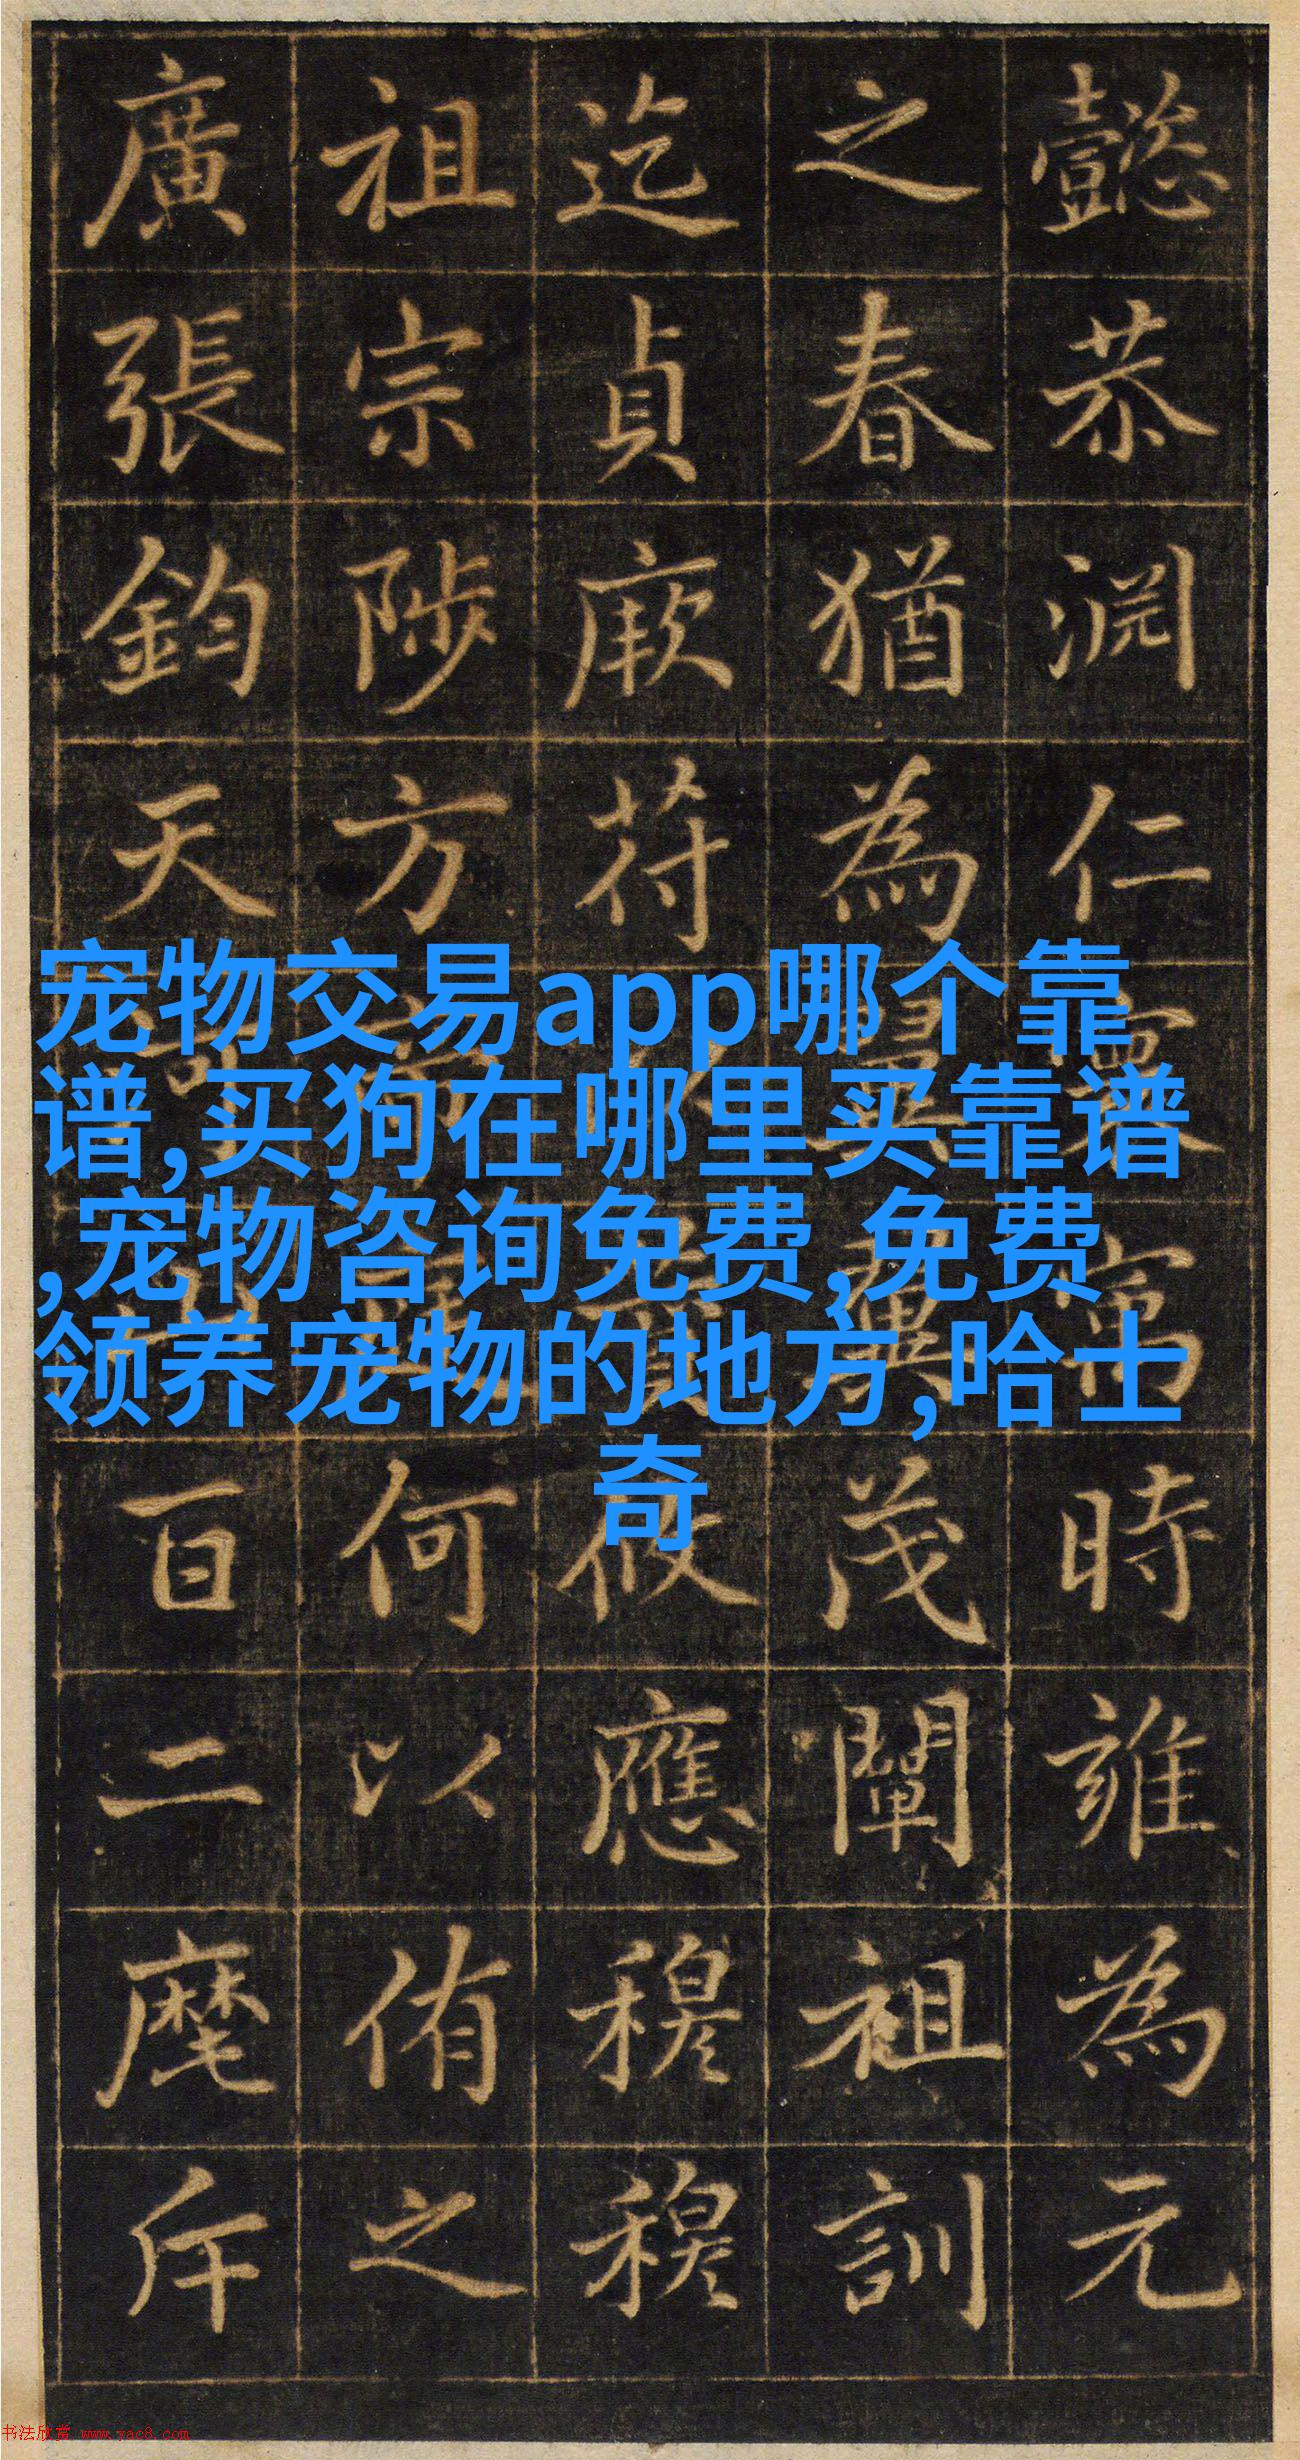 懿恭淵仁時雍為元
之春猶為茂闡祖訓
迄貞厥符攸應穆穆
祖宗陟方何以侑之
廣張鈞天百二麾斥
宠物交易app哪个靠
谱,买狗在哪里买靠谱
,宠物咨询免费,免费
领养宠物的地方,哈士
奇
书法欣赏 www.yac8.com